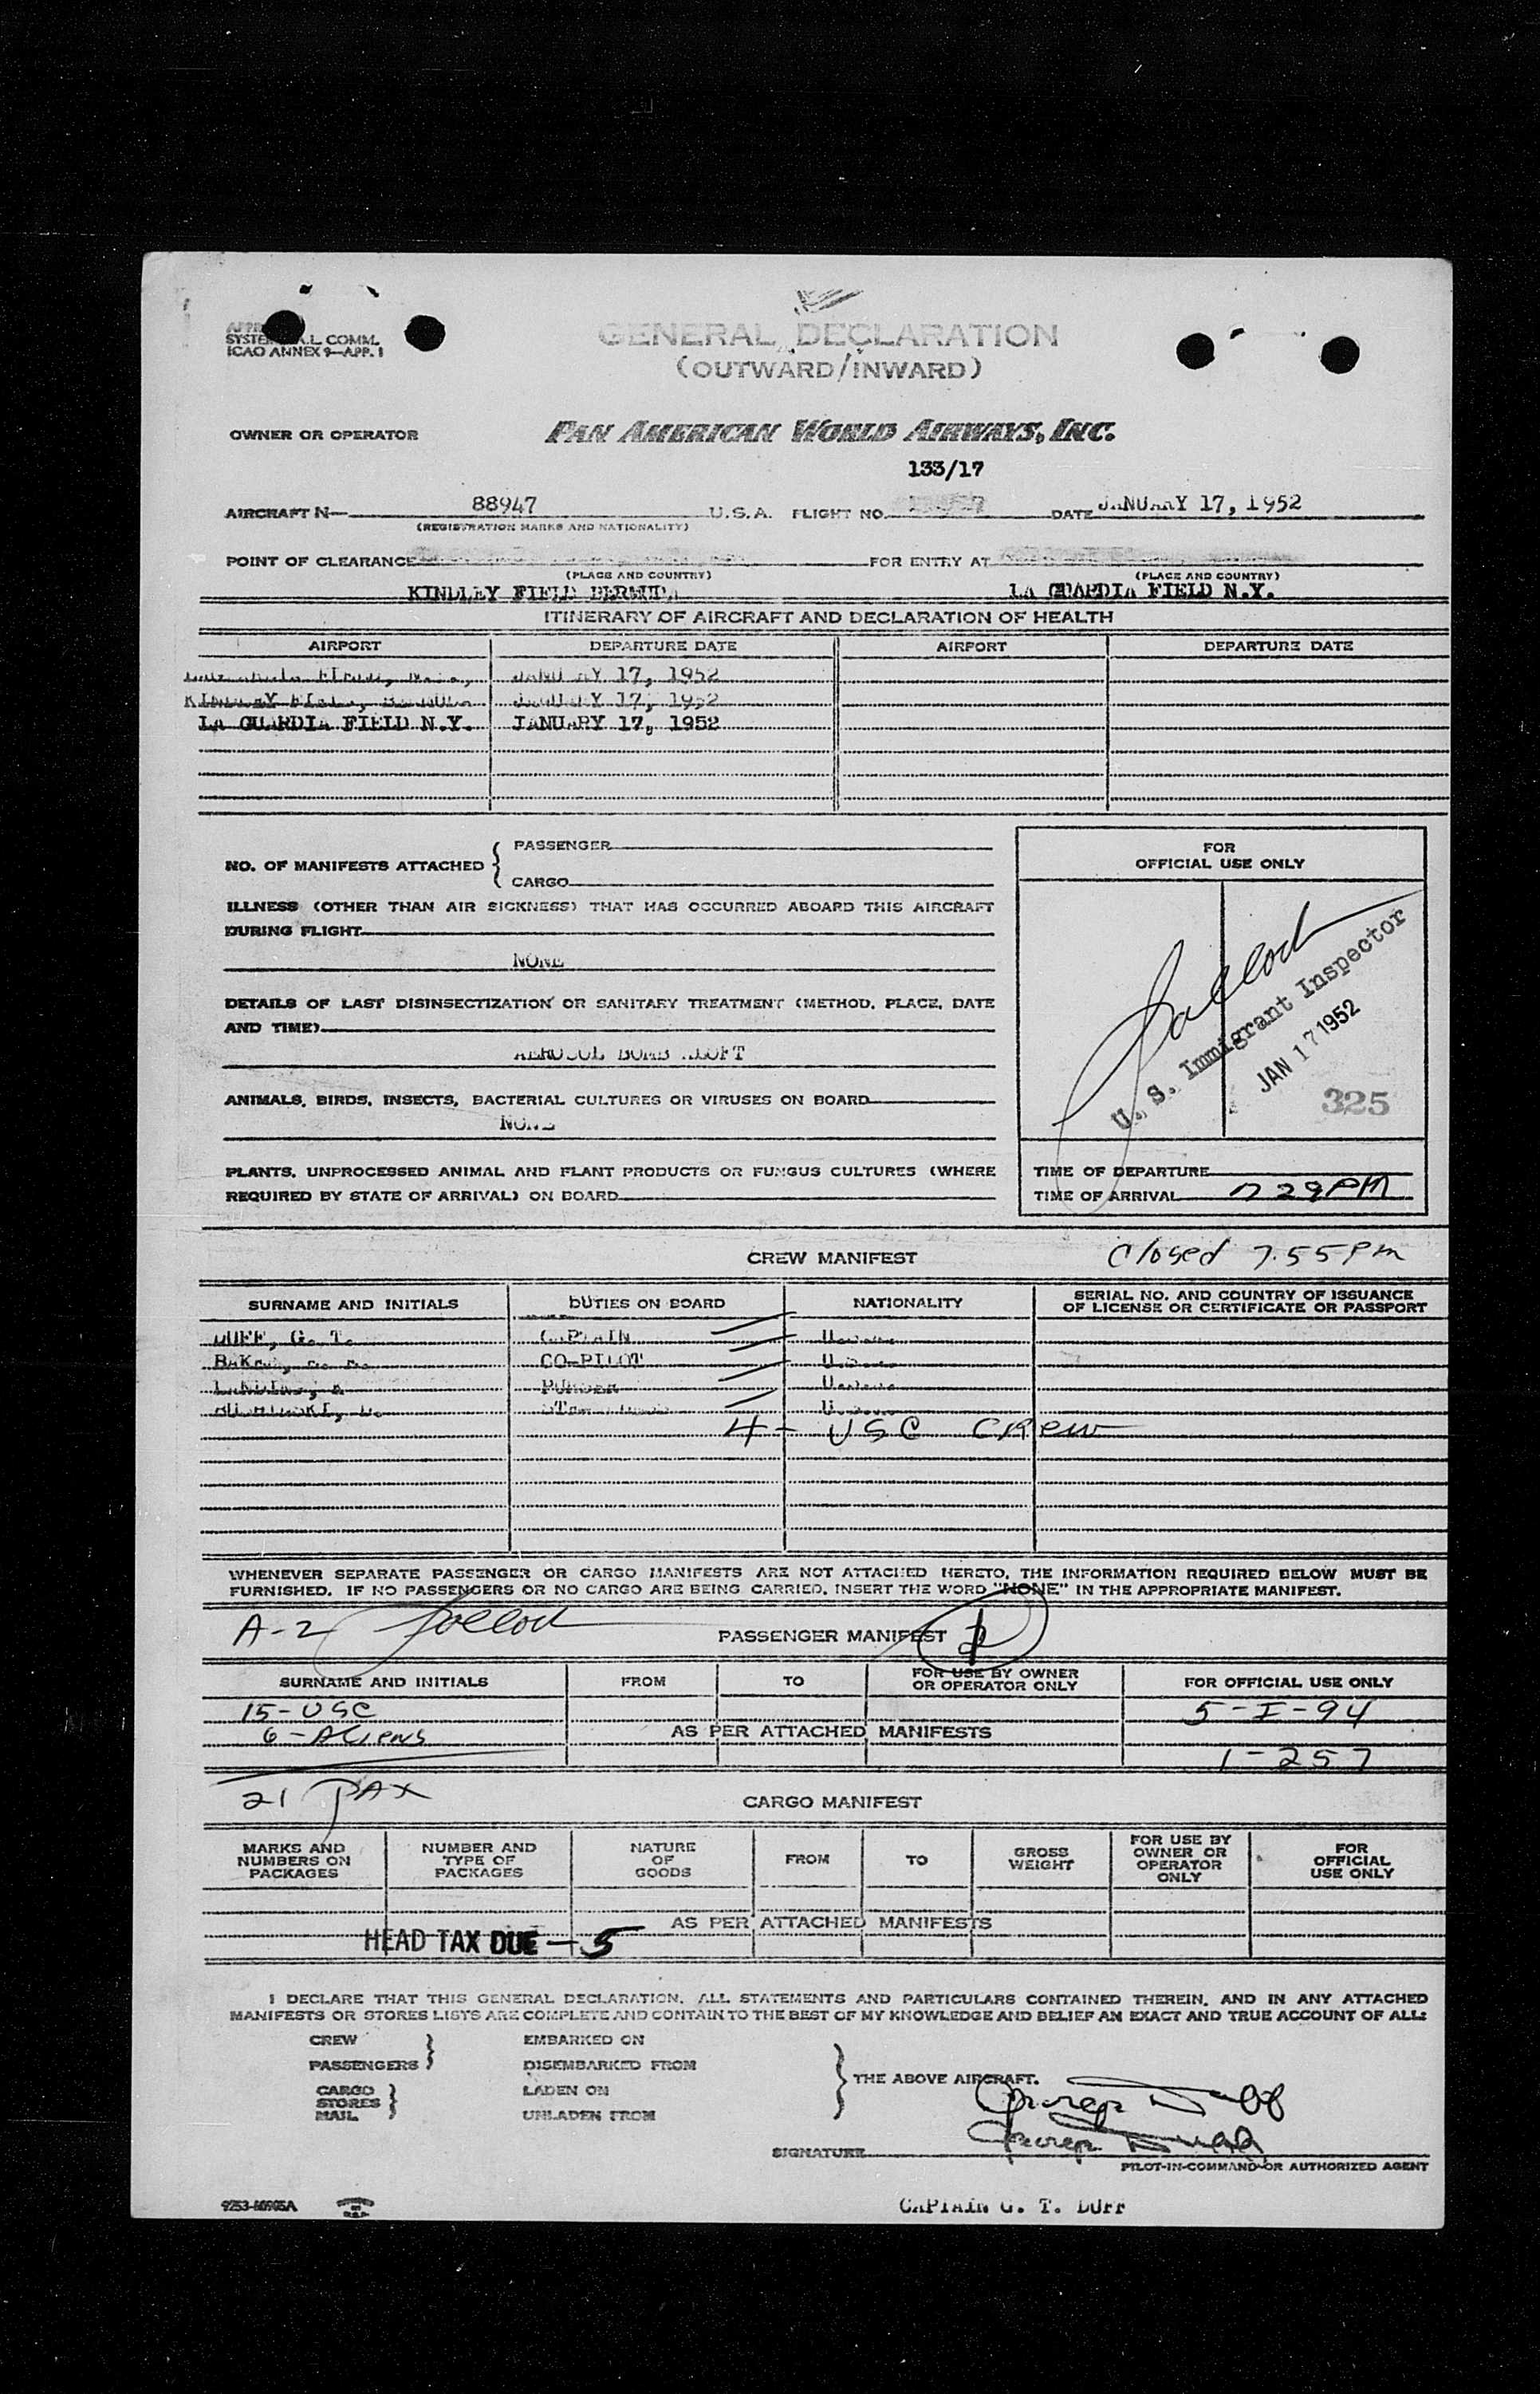 SYSTEM A.L. COMM.
ICAO ANNEX 9—APP. 1
GENERAL DECLARATION
(OUTWARD/INWARD)
OWNER OR OPERATOR PAN AMERICAN WORLD AIRWAYS, INC.
133/17
AIRCRAFT N— 88947 U.S.A. FLIGHT NO. DATE JANUARY 17, 1952
(REGISTRATION MARKS AND NATIONALITY)
POINT OF CLEARANCE FOR ENTRY AT
(PLACE AND COUNTRY) (PLACE AND COUNTRY)
KINDLEY FIELD BERMUDA LA GUARDIA FIELD N.Y.
ITINERARY OF AIRCRAFT AND DECLARATION OF HEALTH
AIRPORT DEPARTURE DATE AIRPORT DEPARTURE DATE
JANUARY 17, 1952
KINDLEY FIELD, BERMUDA JANUARY 17, 1952
LA GUARDIA FIELD N.Y. JANUARY 17, 1952
NO. OF MANIFESTS ATTACHED { PASSENGER
CARGO
ILLNESS (OTHER THAN AIR SICKNESS) THAT HAS OCCURRED ABOARD THIS AIRCRAFT
DURING FLIGHT
NONE
DETAILS OF LAST DISINSECTIZATION OR SANITARY TREATMENT (METHOD, PLACE, DATE
AND TIME)
AEROSOL BOMB ALOFT
ANIMALS, BIRDS, INSECTS, BACTERIAL CULTURES OR VIRUSES ON BOARD
NONE
PLANTS, UNPROCESSED ANIMAL AND PLANT PRODUCTS OR FUNGUS CULTURES (WHERE
REQUIRED BY STATE OF ARRIVAL) ON BOARD
FOR
OFFICIAL USE ONLY
U. S. Immigrant Inspector
JAN 17 1952
325
TIME OF DEPARTURE
TIME OF ARRIVAL 7 29 PM
CREW MANIFEST Closed 7.55 PM
SURNAME AND INITIALS DUTIES ON BOARD NATIONALITY SERIAL NO. AND COUNTRY OF ISSUANCE
OF LICENSE OR CERTIFICATE OR PASSPORT
DUFF, G. T. CAPTAIN
CO-PILOT
PURSER
4 - USC CREW
WHENEVER SEPARATE PASSENGER OR CARGO MANIFESTS ARE NOT ATTACHED HERETO, THE INFORMATION REQUIRED BELOW MUST BE
FURNISHED. IF NO PASSENGERS OR NO CARGO ARE BEING CARRIED, INSERT THE WORD "NONE" IN THE APPROPRIATE MANIFEST.
A-2 PASSENGER MANIFEST
SURNAME AND INITIALS FROM TO FOR USE BY OWNER
OR OPERATOR ONLY FOR OFFICIAL USE ONLY
15-USC 5-I-94
6-ALIENS AS PER ATTACHED MANIFESTS
1-257
21 PAX
CARGO MANIFEST
MARKS AND
NUMBERS ON
PACKAGES
NUMBER AND
TYPE OF
PACKAGES
NATURE
OF
GOODS
FROM TO
GROSS
WEIGHT
FOR USE BY
OWNER OR
OPERATOR
ONLY
FOR
OFFICIAL
USE ONLY
AS PER ATTACHED MANIFESTS
HEAD TAX DUE — 5
I DECLARE THAT THIS GENERAL DECLARATION, ALL STATEMENTS AND PARTICULARS CONTAINED THEREIN, AND IN ANY ATTACHED
MANIFESTS OR STORES LISTS ARE COMPLETE AND CONTAIN TO THE BEST OF MY KNOWLEDGE AND BELIEF AN EXACT AND TRUE ACCOUNT OF ALL:
CREW EMBARKED ON
PASSENGERS DISEMBARKED FROM
THE ABOVE AIRCRAFT.
CARGO LADEN ON
STORES
MAIL UNLADEN FROM
SIGNATURE
PILOT-IN-COMMAND OR AUTHORIZED AGENT
CAPTAIN G. T. DUFF